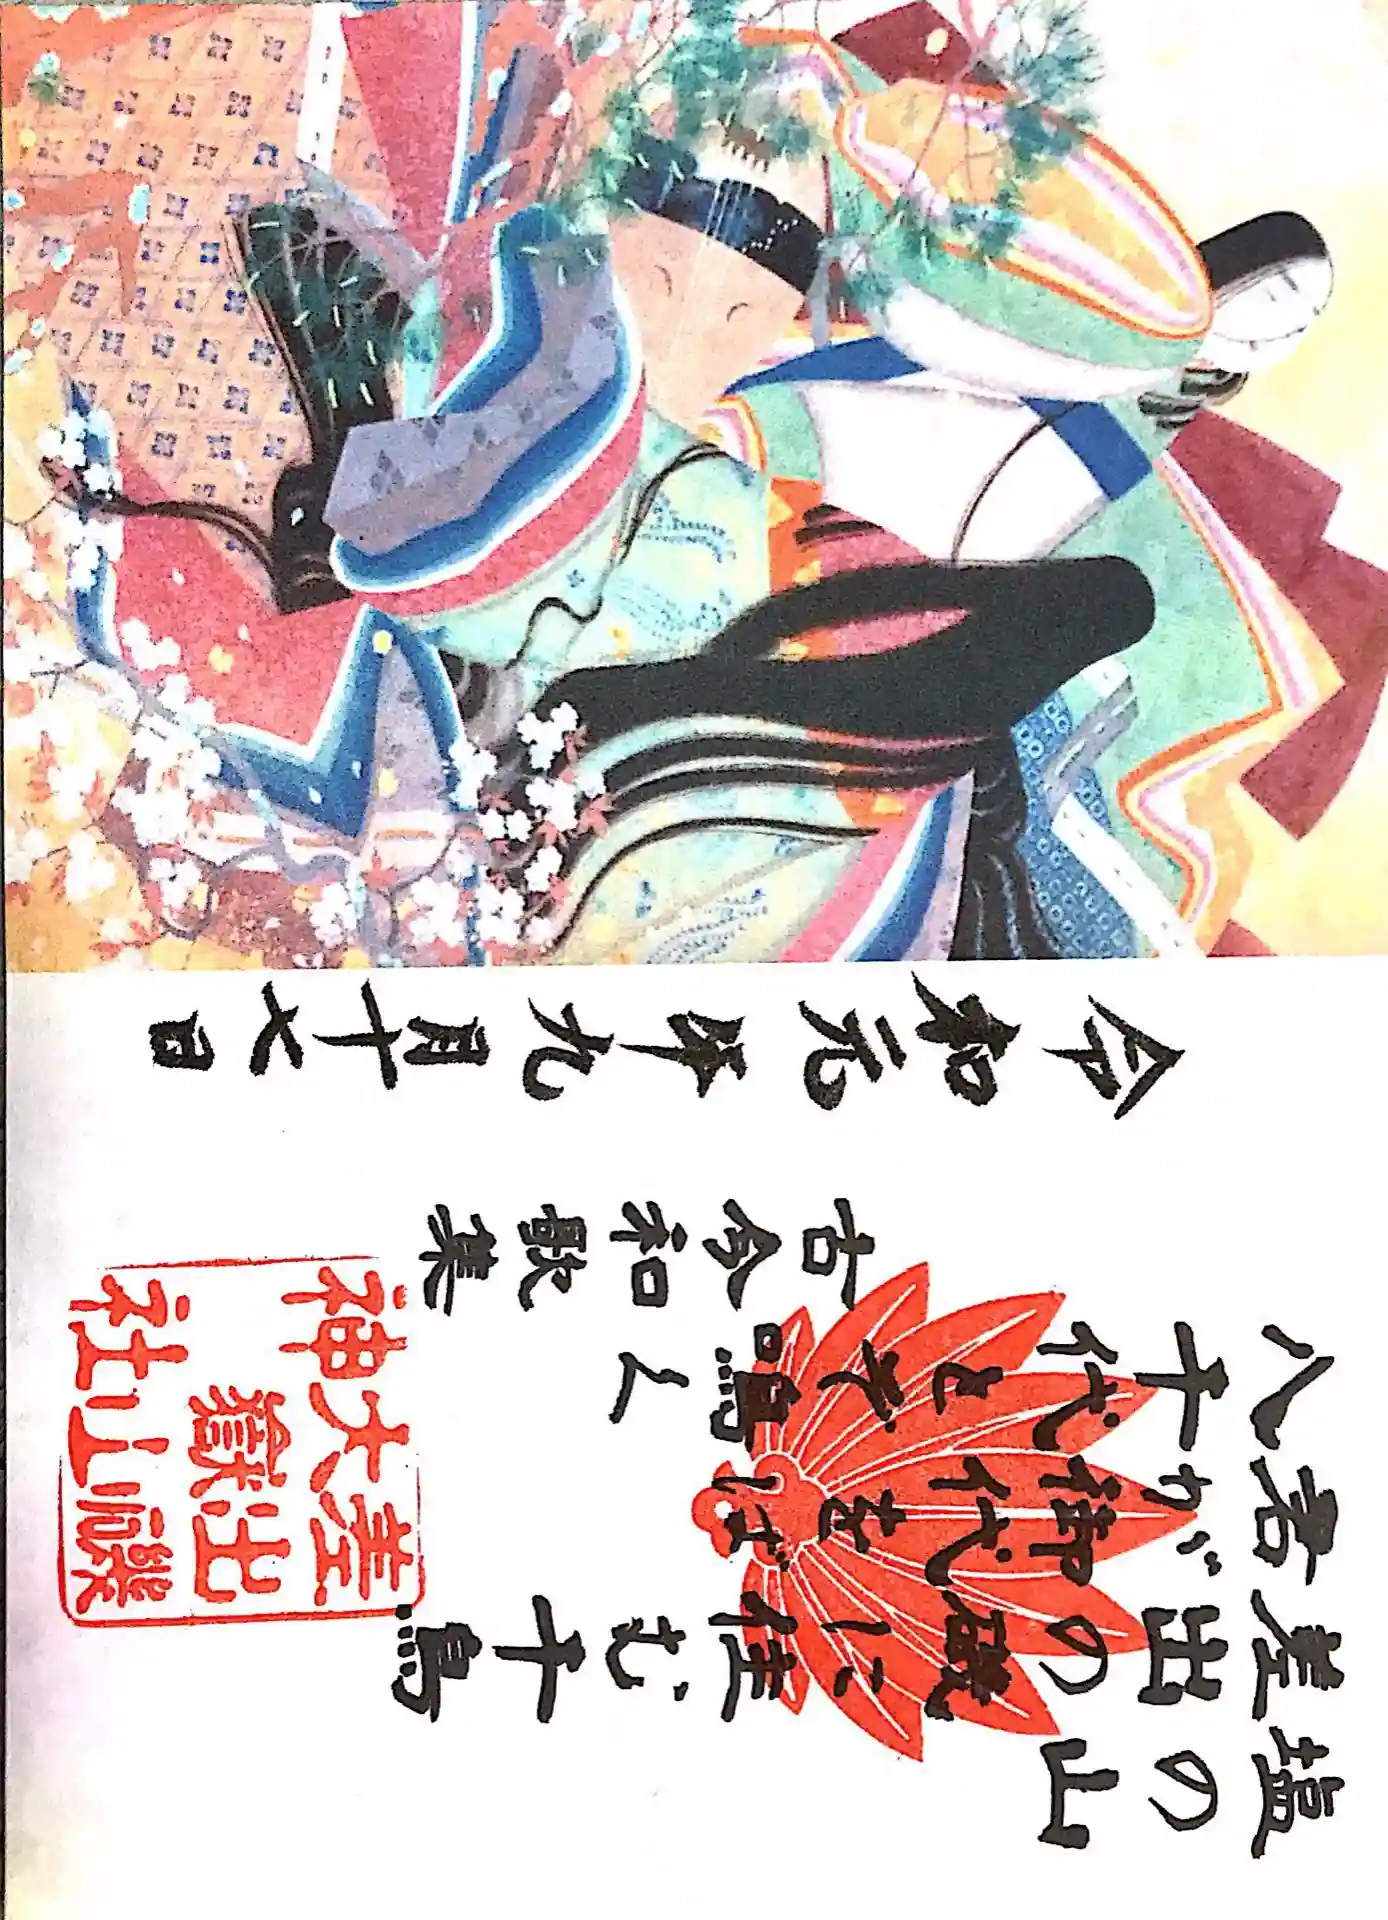 塩の山
差出の磯に住む千鳥
君が御代をば
八千代とぞ鳴く
古今和歌集
令和元年九月十七日
差出磯
大嶽山
神社